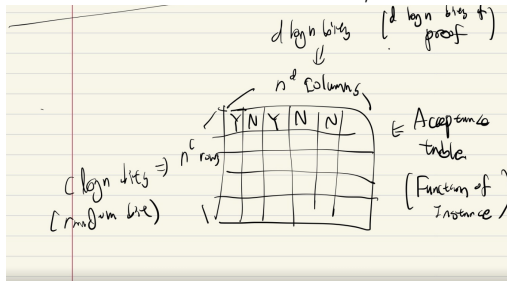 d log n bits
[d log n bits of proof]
n^d columns
Y N Y N N
n^c rows
← Acceptance table
[Function of Instance]
c log n bits ⇒
[random bits]